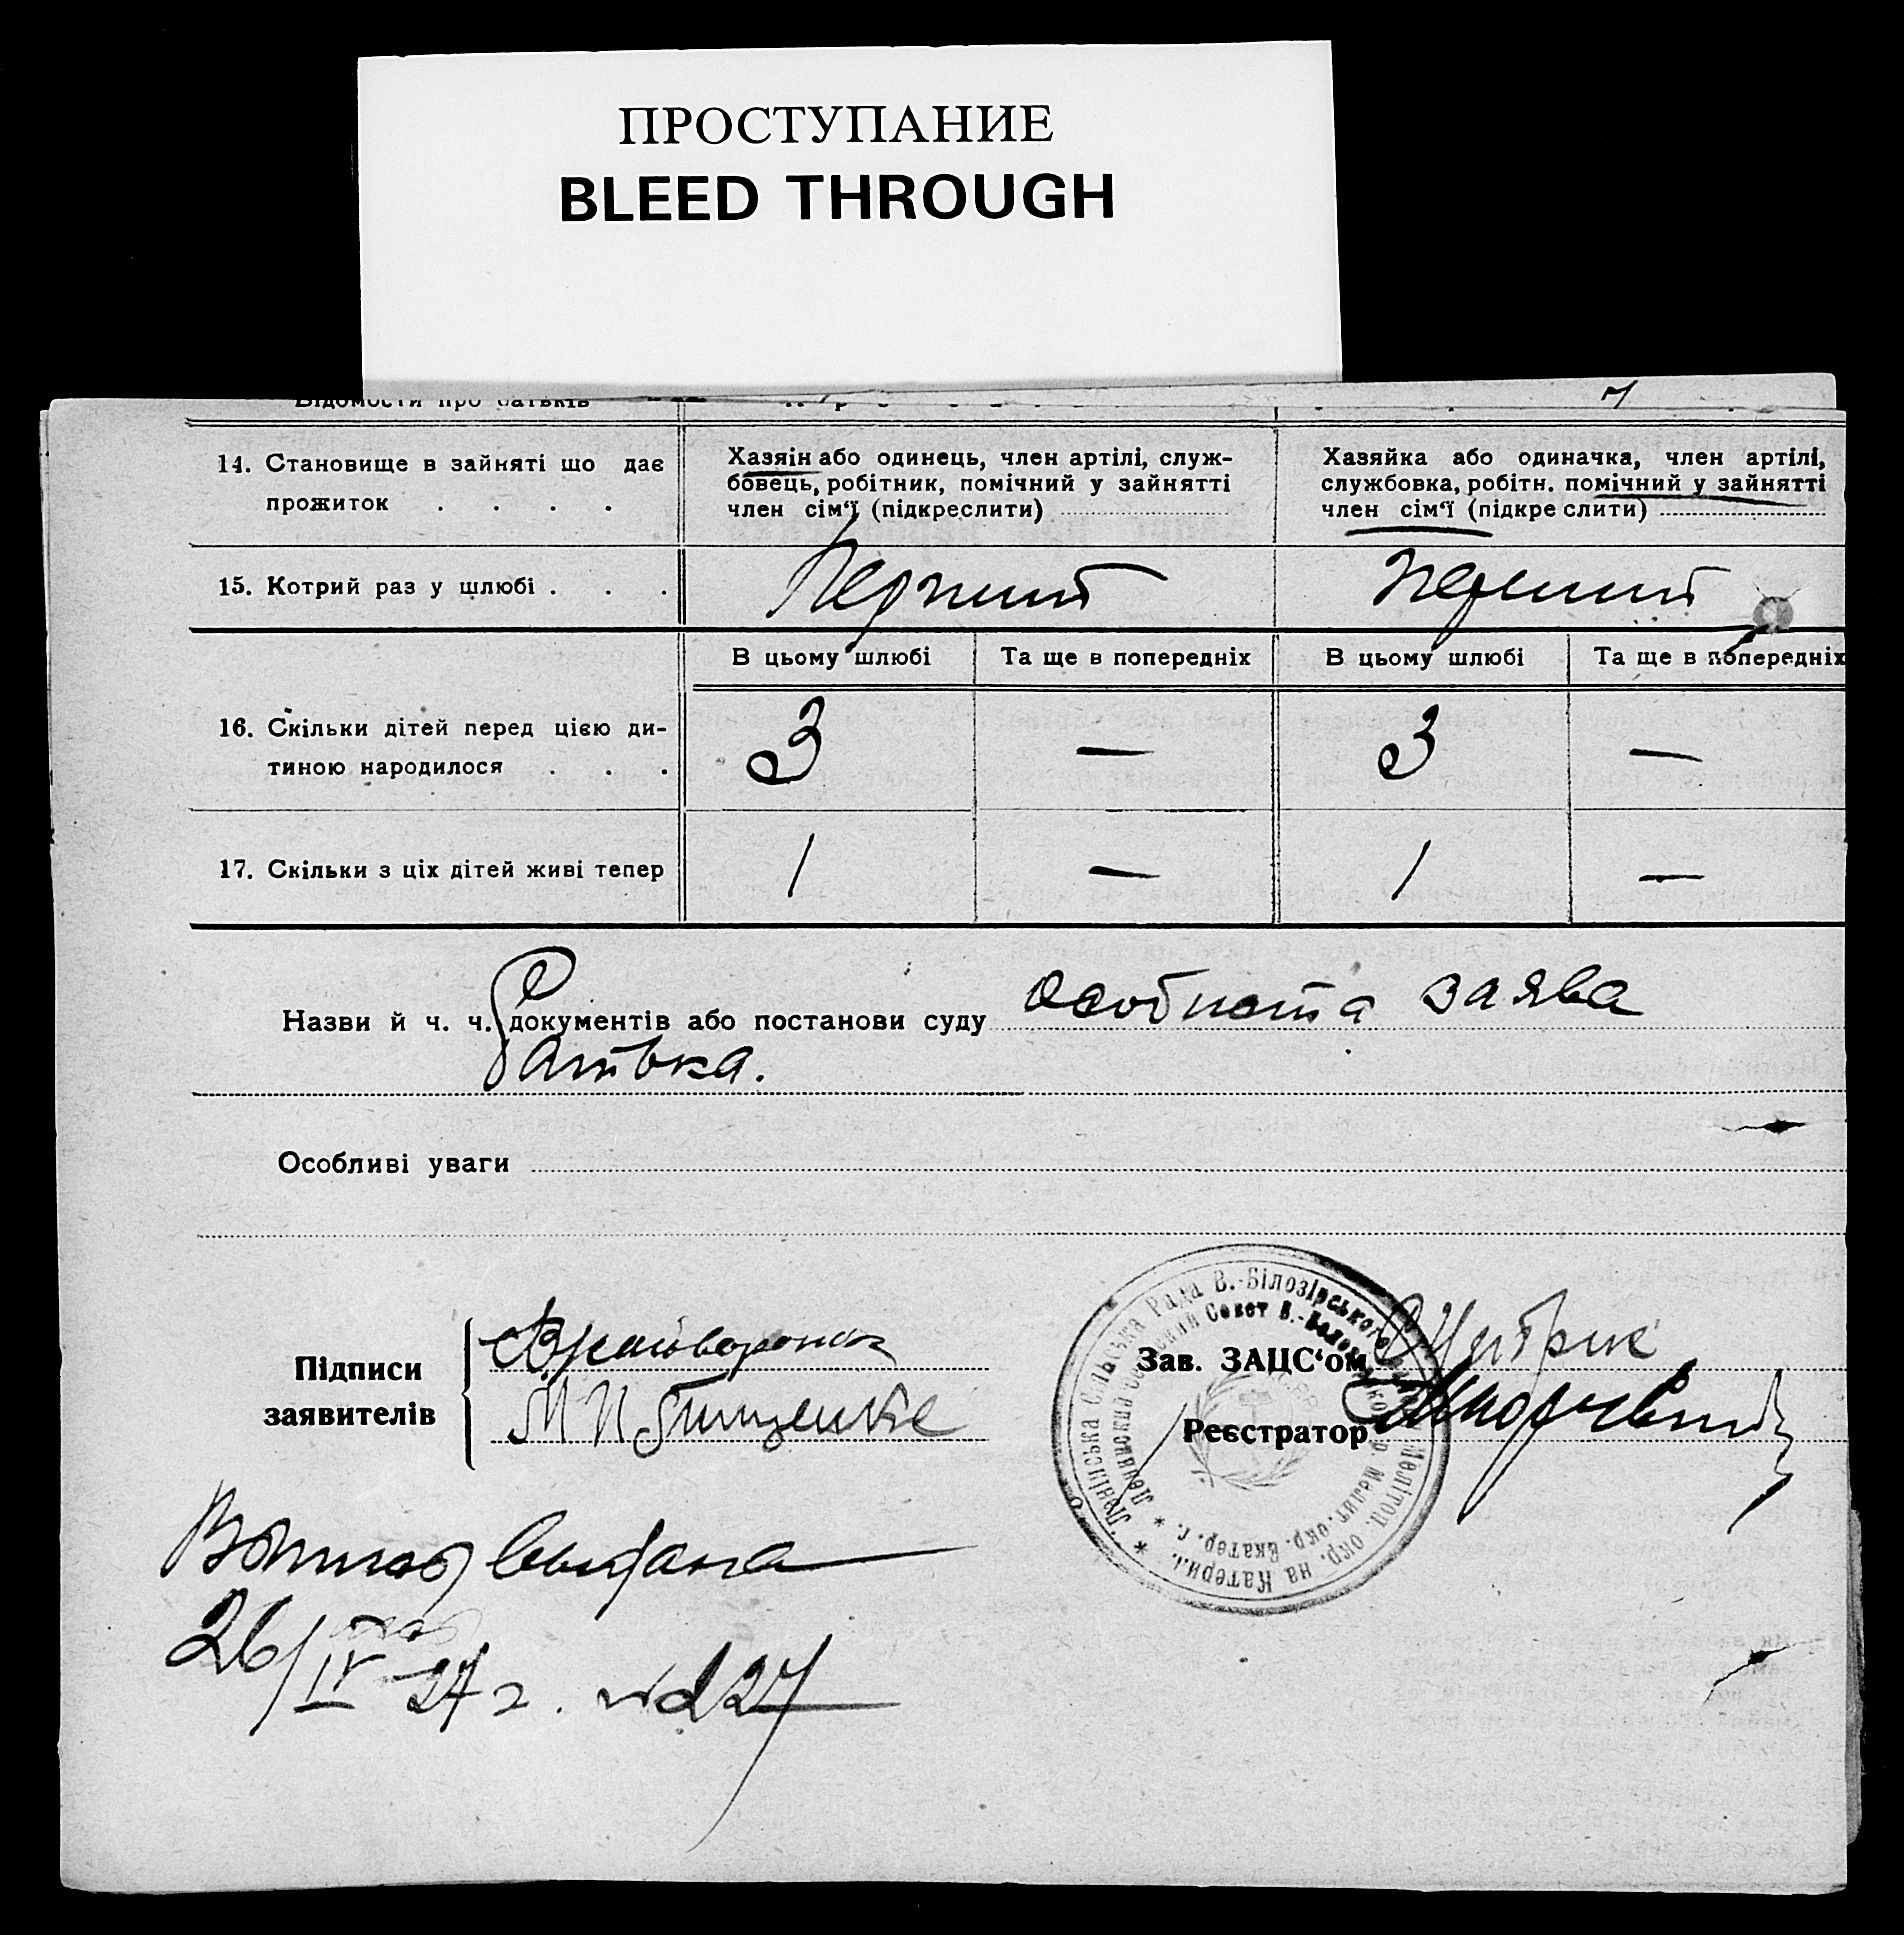 ПРОСТУПАНИЕ
BLEED THROUGH
Відомости про батьків
14. Становище в зайняті що дає
прожиток . . . .
Хазяін або одинець, член артілі, служ-
бовець, робітник, помічний у зайнятті
член сім‘ї (підкреслити)
Хазяйка або одиначка, член артілі,
службовка, робітн. помічний у зайнятті
член сім‘ї (підкреслити)
15. Котрий раз у шлюбі . . .
Перший
перший
В цьому шлюбі
Та ще в попередніх
В цьому шлюбі
Та ще в попередніх
16. Скільки дітей перед цією ди-
тиною народилося . . .
3 — 3 —
17. Скільки з ціх дітей живі тепер
1 — 1 —
Назви й ч. ч. документів або постанови суду особиста заява
батька.
Особливі уваги
Підписи
заявителів
Зав. ЗАЦС‘ом
Реєстратор
* Ленінська Сільська Рада В.-Білозірського Мелітоп. окр. на Катерин.
* Ленинский Сельский Совет В.-Белозерского р. Мелит. окр. Екатер. г.
выдана
26/IV 27 г.